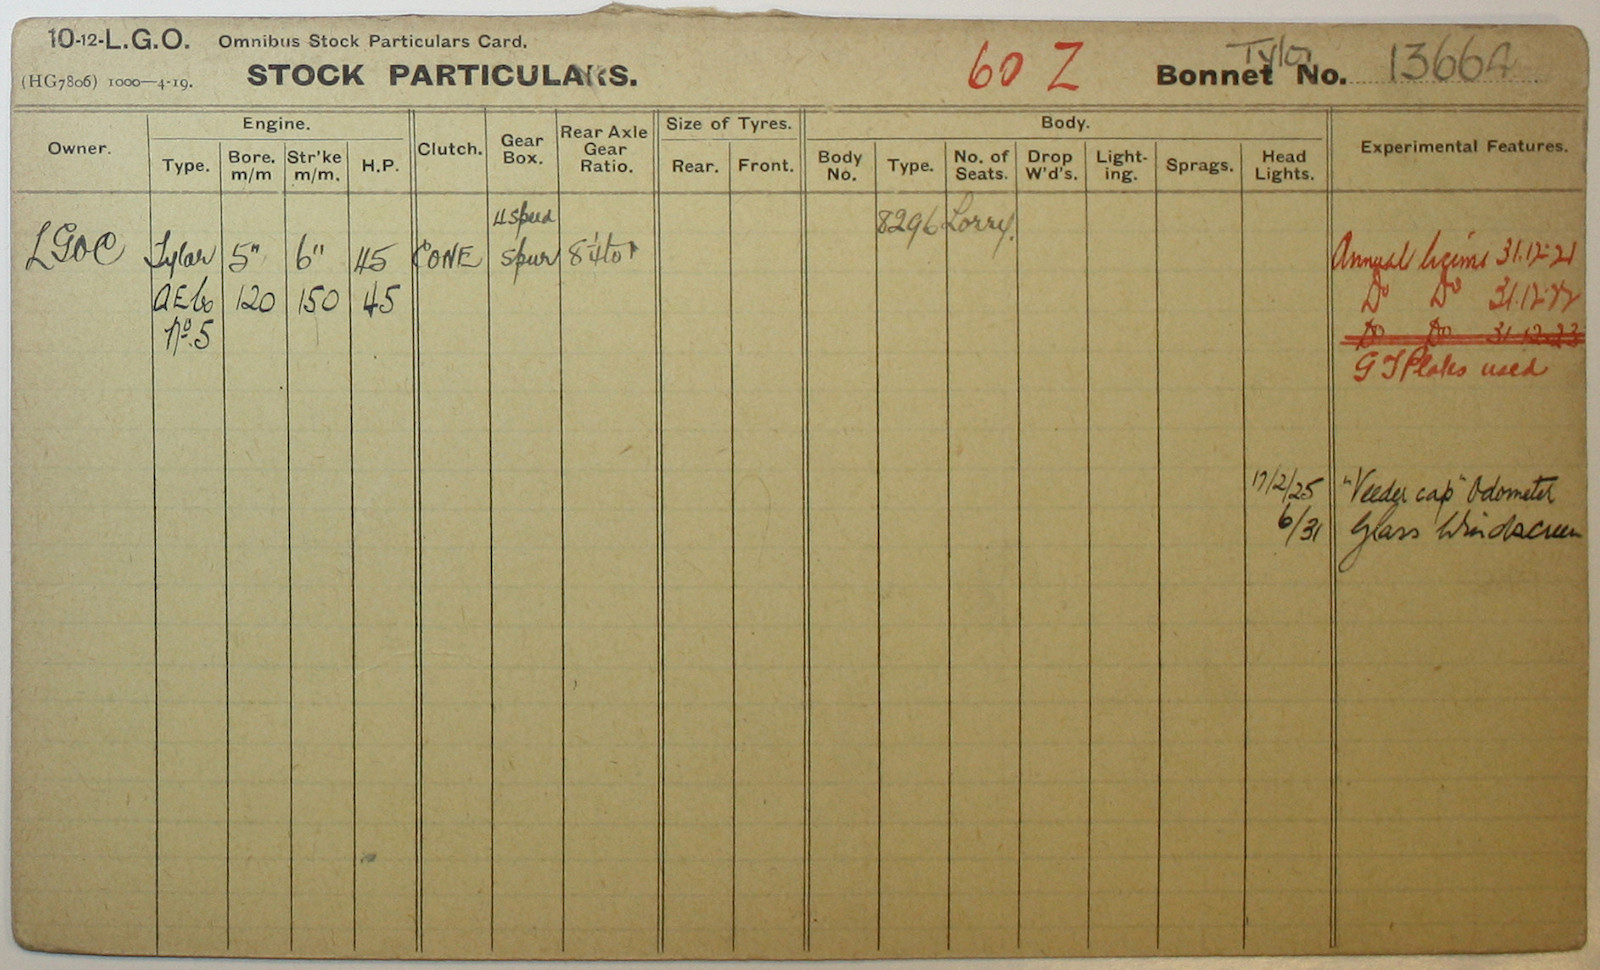 10-12-L.G.O. Omnibus Stock Particulars Card.
(HG7806) 1000—4-19. STOCK PARTICULARS. 60 Z Tylor Bonnet No. 1366A
Owner. Engine. Clutch. Gear Box. Rear Axle Gear Ratio. Size of Tyres. Body. Experimental Features.
Type. Bore. m/m Str'ke m/m. H.P. Rear. Front. Body No. Type. No. of Seats. Drop W'd's. Light-ing. Sprags. Head Lights.
4 speed 8296 Lorry.
LGOC Tylor 5" 6" 45 CONE spur 8¼ to 1 Annual 31.12.21
AEC 120 150 45 Do Do 31.12.22
No. 5 Do Do 31.12.23
G T Plates used
17/2/25 "Veeder cap" Odometer
6/31 Glass Windscreen